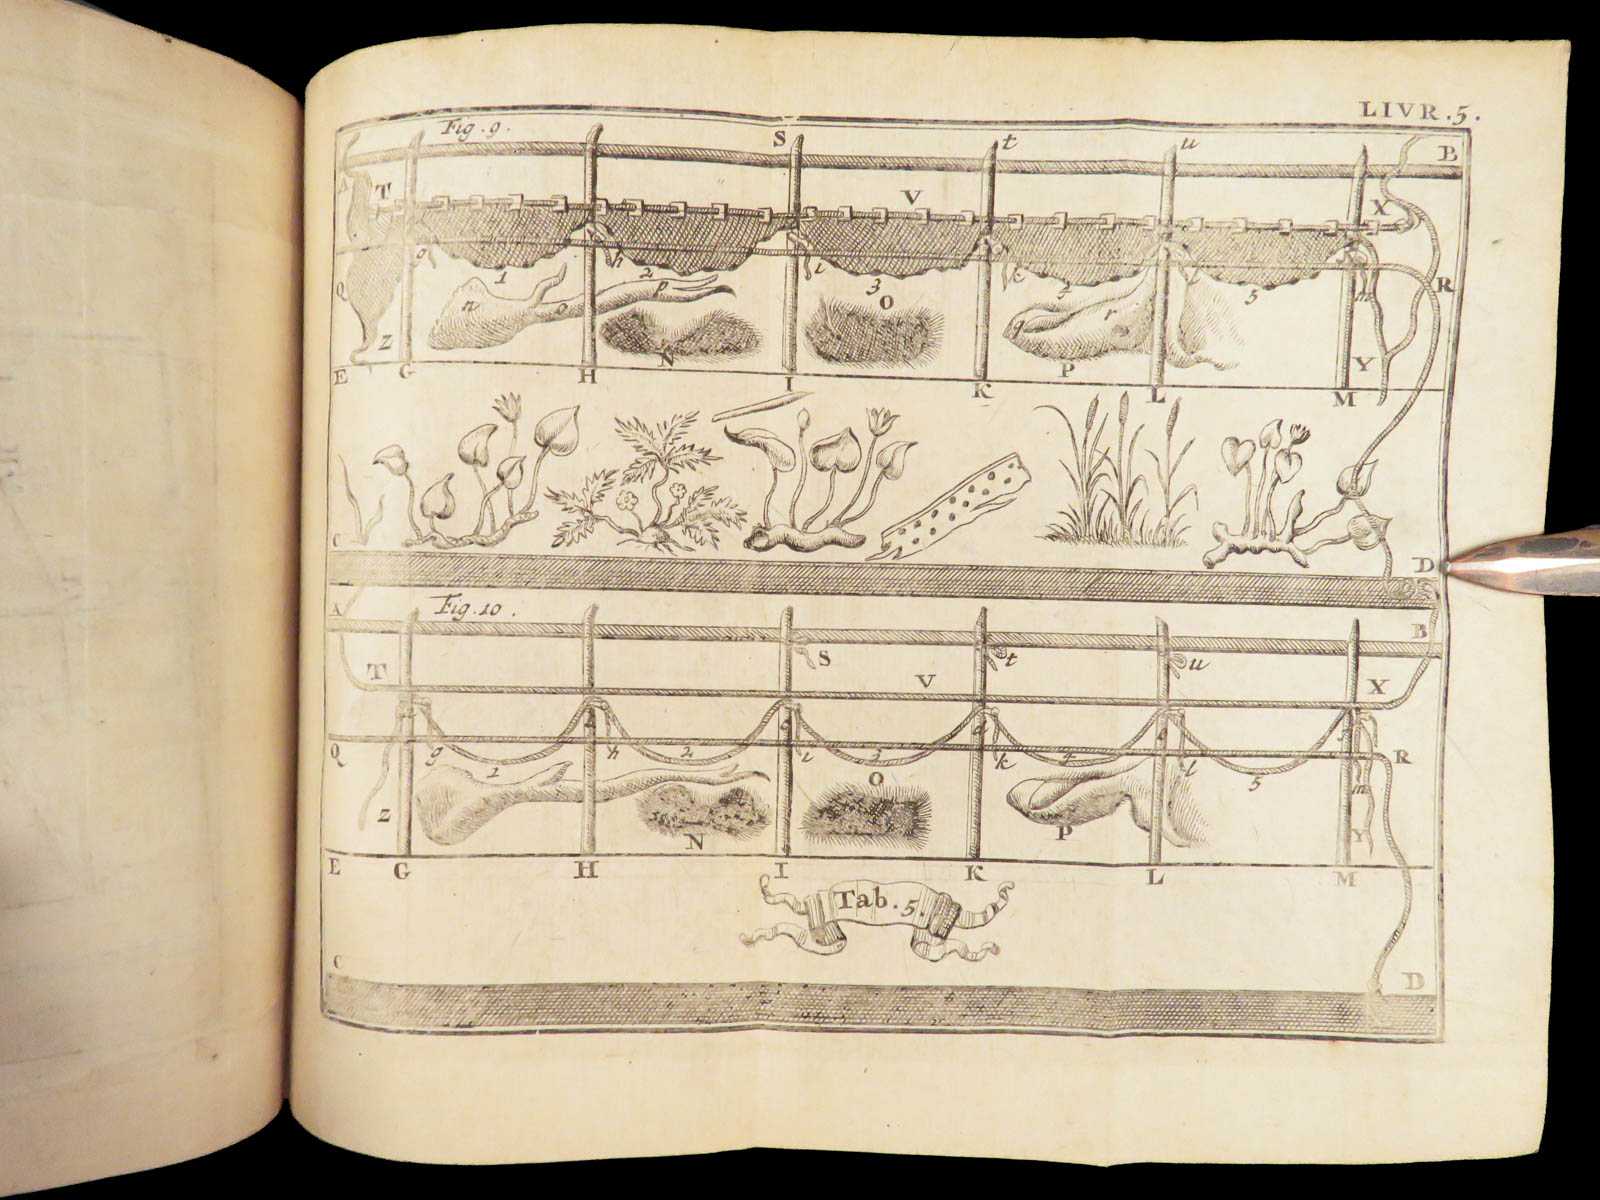 LIVR. 5.
Fig. 9.
S t u B
A T V X
g h i k R
1 2 3 4 5
Q n o p O q r m
Z N P Y
E G H I K L M
C D
Fig. 10.
A B
S t u
T V X
Q g h i k l R
1 2 3 4 5
O m
Z N P Y
E G H I K L M
Tab. 5.
C D